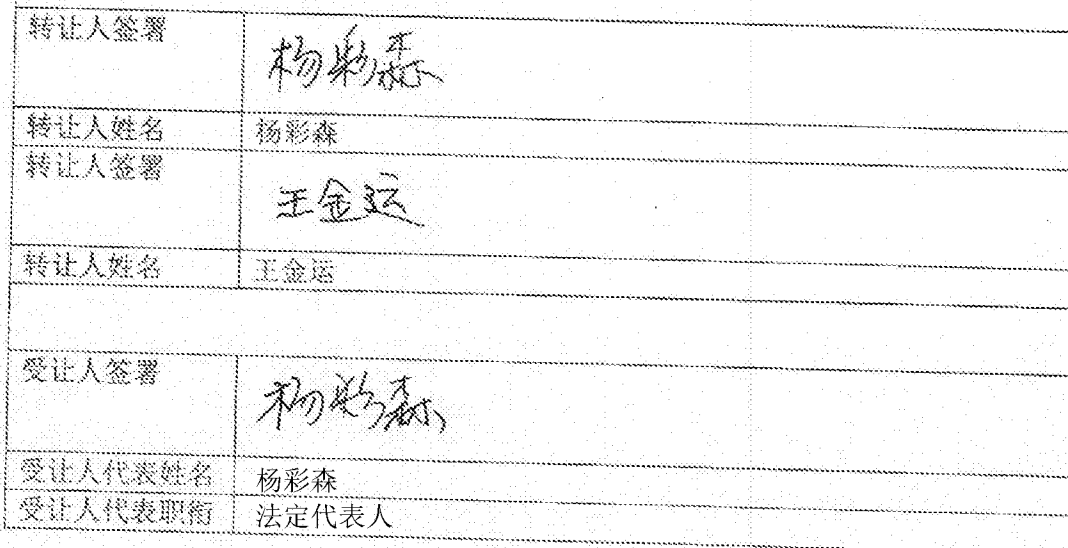 转让人签署 杨彩森
转让人姓名 杨彩森
转让人签署 王金运
转让人姓名 王金运
受让人签署 杨彩森
受让人代表姓名 杨彩森
受让人代表职衔 法定代表人